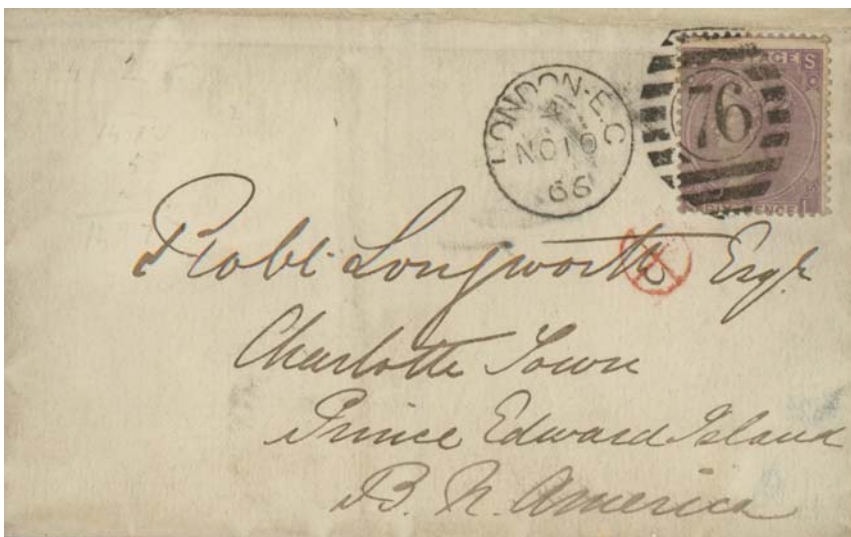 LONDON-E.C
A
NO 10
66
76
S
SIX PENCE
I
Robt. Longworth Esqr.
Charlotte Town
Prince Edward Island
B. N. America